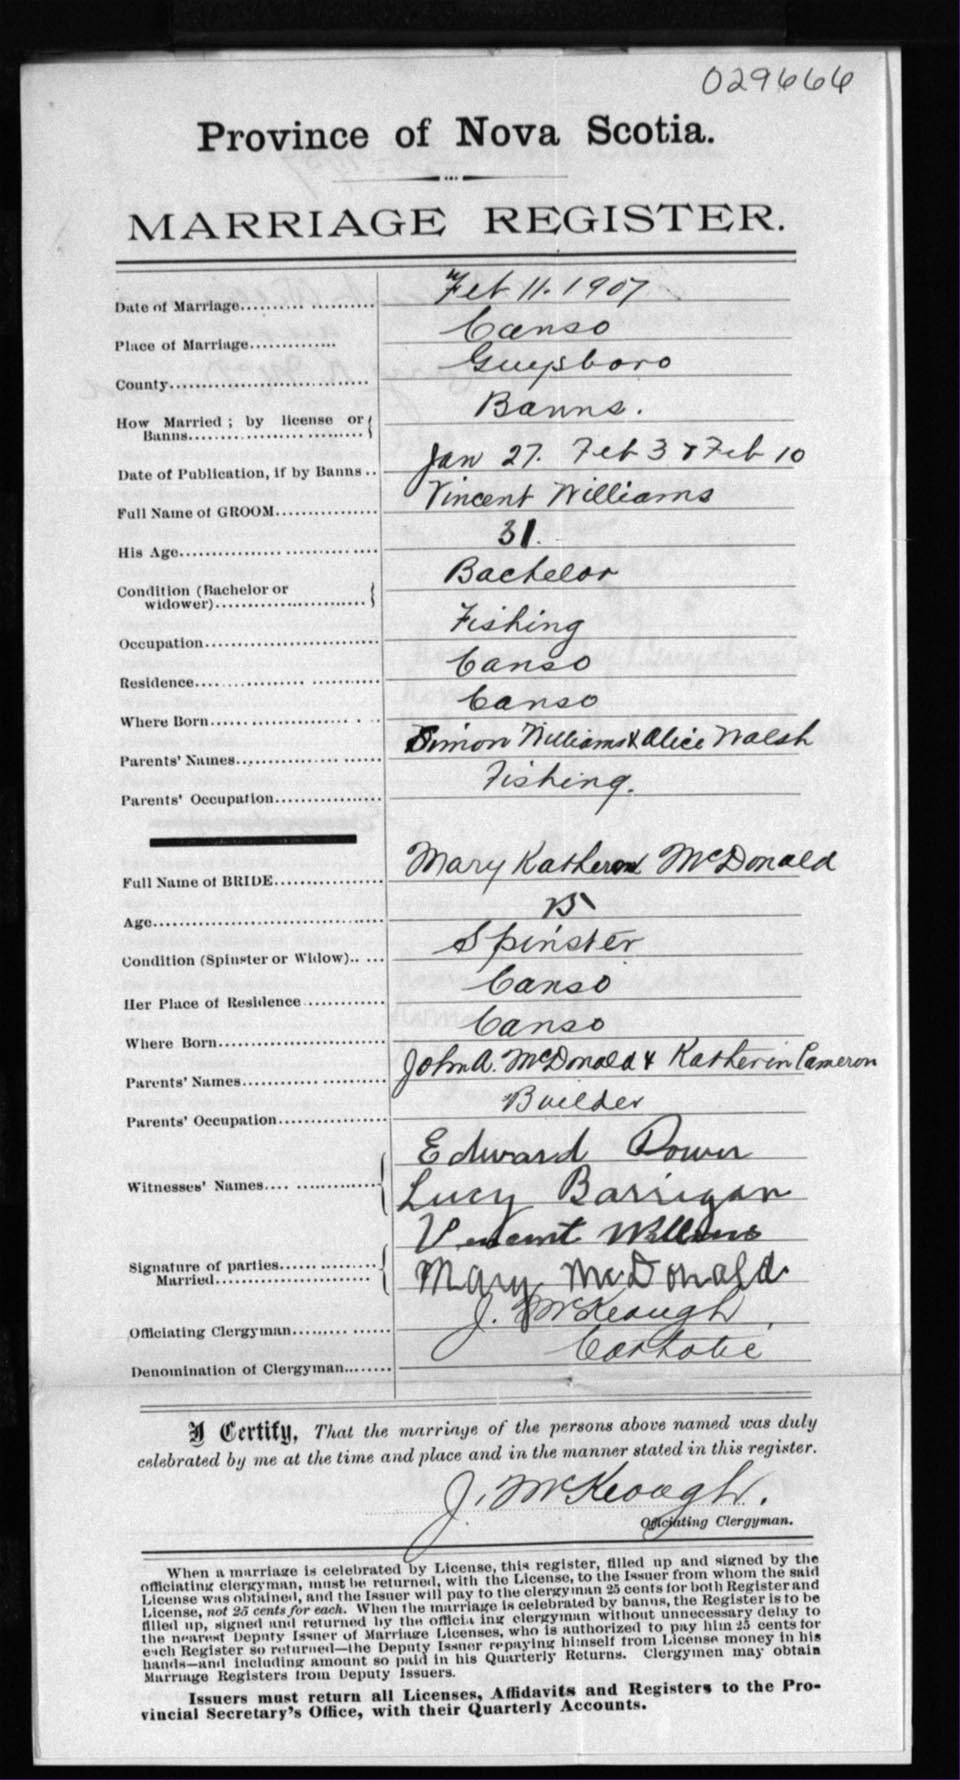 029666
Province of Nova Scotia.
MARRIAGE REGISTER.
Date of Marriage Feb 11. 1907
Place of Marriage Canso
County Guysboro
How Married; by license or Banns Banns.
Date of Publication, if by Banns Jan 27. Feb 3 & Feb 10
Full Name of GROOM Vincent Williams
His Age 31.
Condition (Bachelor or widower) Bachelor
Occupation Fishing
Residence Canso
Where Born Canso
Parents' Names Simon Williams & Alice Walsh
Parents' Occupation Fishing.
Full Name of BRIDE Mary Katheren McDonald
Age
Condition (Spinster or Widow) Spinster
Her Place of Residence Canso
Where Born Canso
Parents' Names John A. McDonald & Katherin Cameron
Parents' Occupation Builder
Witnesses' Names Edward Power
Lucy Barrigan
Signature of parties Married Vincent Williams
Mary McDonald
Officiating Clergyman J. McKeough
Denomination of Clergyman Catholic
I Certify, That the marriage of the persons above named was duly
celebrated by me at the time and place and in the manner stated in this register.
J. McKeough.
Officiating Clergyman.
When a marriage is celebrated by License, this register, filled up and signed by the
officiating clergyman, must be returned, with the License, to the Issuer from whom the said
License was obtained, and the Issuer will pay to the clergyman 25 cents for both Register and
License, not 25 cents for each. When the marriage is celebrated by banns, the Register is to be
filled up, signed and returned by the officia ing clergyman without unnecessary delay to
the nearest Deputy Issuer of Marriage Licenses, who is authorized to pay him 25 cents for
each Register so returned—the Deputy Issuer repaying himself from License money in his
hands—and including amount so paid in his Quarterly Returns. Clergymen may obtain
Marriage Registers from Deputy Issuers.
Issuers must return all Licenses, Affidavits and Registers to the Pro-
vincial Secretary's Office, with their Quarterly Accounts.